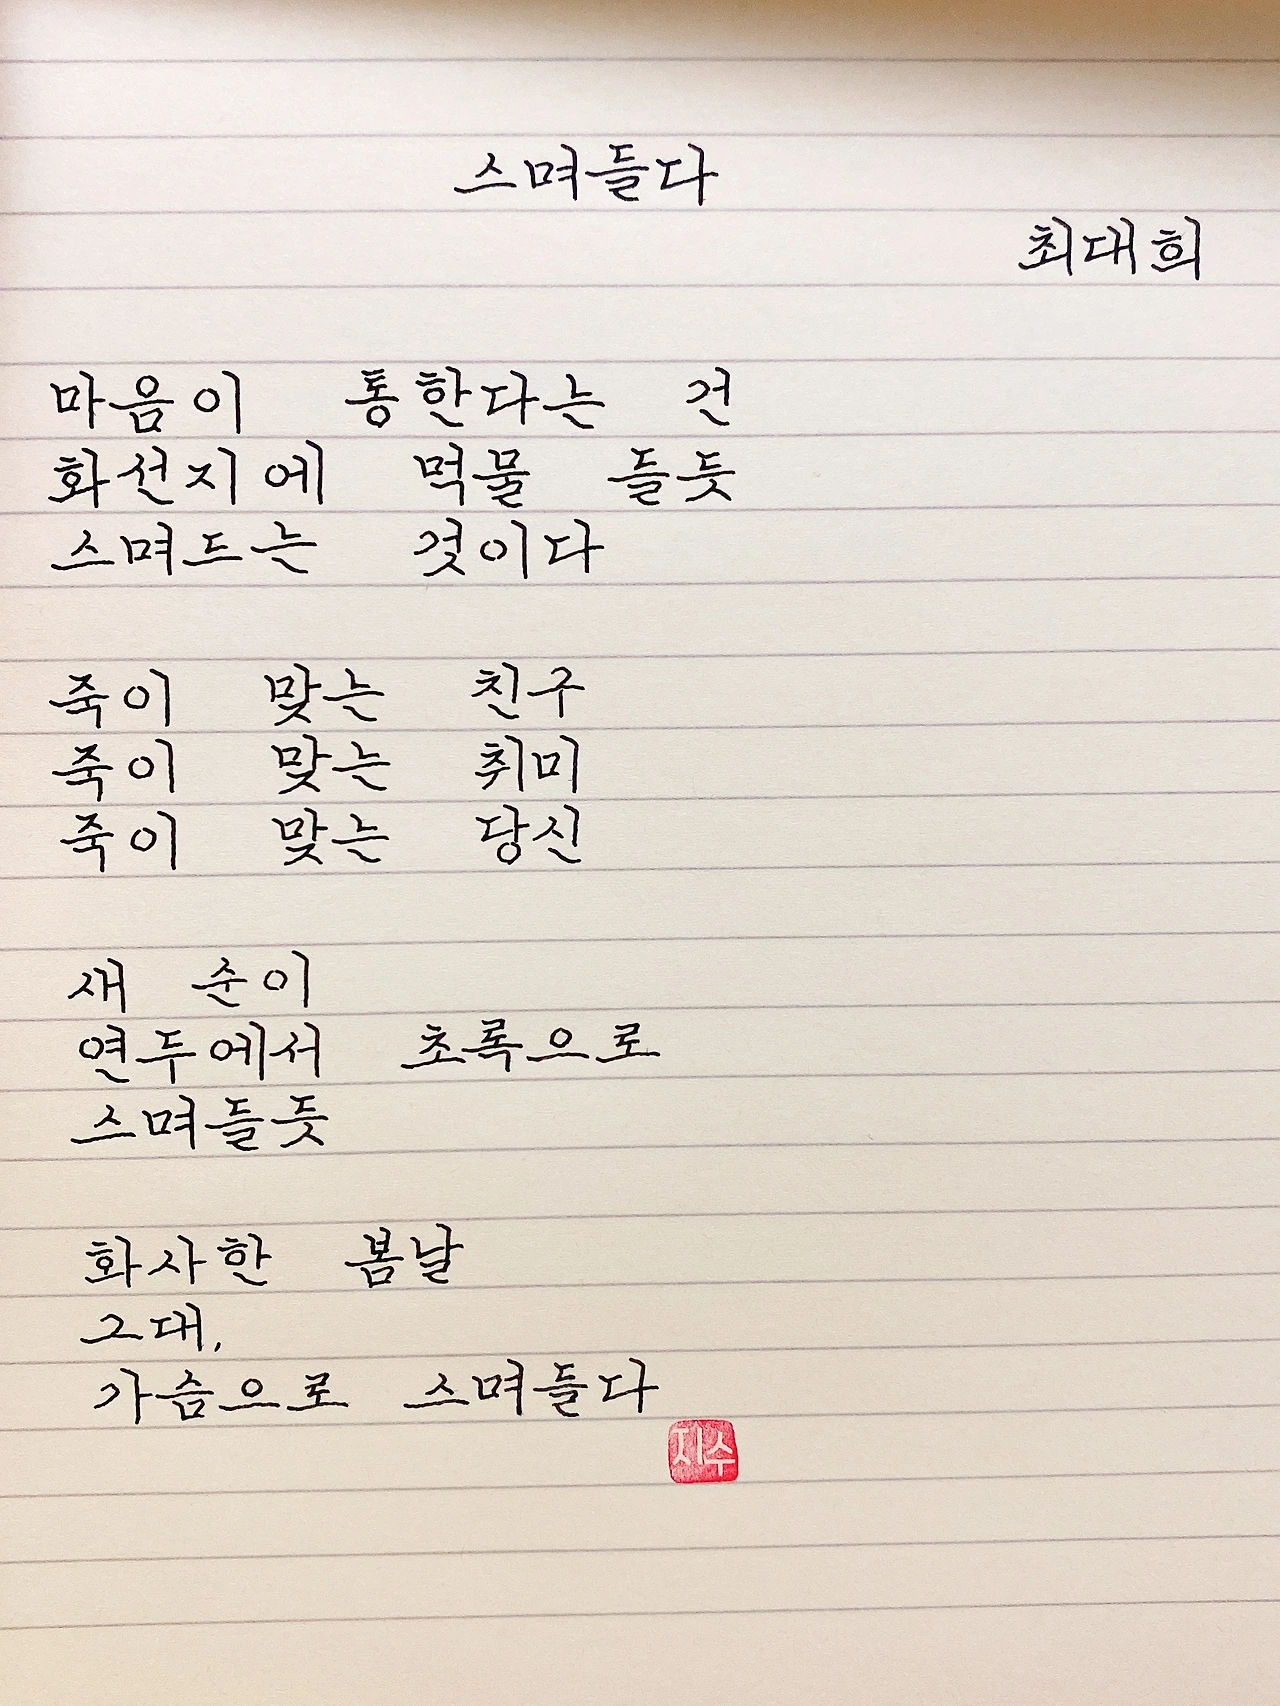 스며들다
최대희
마음이 통한다는 건
화선지에 먹물 들듯
스며드는 것이다
죽이 맞는 친구
죽이 맞는 취미
죽이 맞는 당신
새 순이
연두에서 초록으로
스며들듯
화사한 봄날
그대,
가슴으로 스며들다
지수